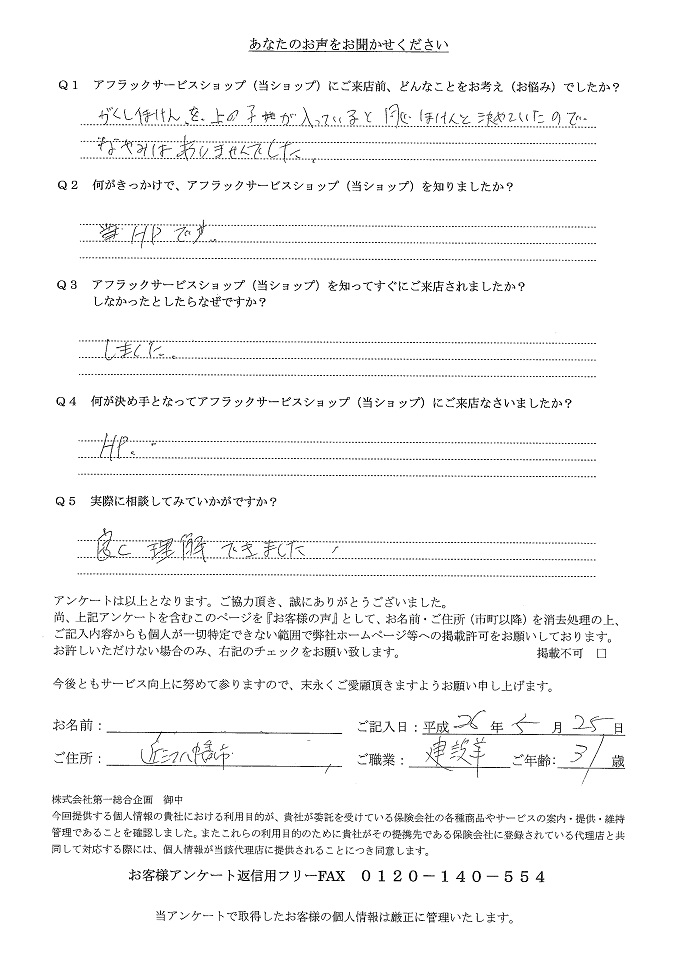 あなたのお声をお聞かせください
Q1 アフラックサービスショップ（当ショップ）にご来店前、どんなことをお考え（お悩み）でしたか？
がくしほけんを、上の子が入っていると同じほけんと決めていたので
なやみはありませんでした。
Q2 何がきっかけで、アフラックサービスショップ（当ショップ）を知りましたか？
HPです。
Q3 アフラックサービスショップ（当ショップ）を知ってすぐにご来店されましたか？
しなかったとしたらなぜですか？
しました。
Q4 何が決め手となってアフラックサービスショップ（当ショップ）にご来店なさいましたか？
HP。
Q5 実際に相談してみていかがですか？
良く理解できました
アンケートは以上となります。ご協力頂き、誠にありがとうございました。
尚、上記アンケートを含むこのページを『お客様の声』として、お名前・ご住所（市町以降）を消去処理の上、
ご記入内容からも個人が一切特定できない範囲で弊社ホームページ等への掲載許可をお願いしております。
お許しいただけない場合のみ、右記のチェックをお願い致します。 掲載不可 □
今後ともサービス向上に努めて参りますので、末永くご愛顧頂きますようお願い申し上げます。
お名前： ご記入日：平成 26 年 5 月 25 日
ご住所： 近江八幡市 ご職業： 建設業 ご年齢： 31 歳
株式会社第一総合企画 御中
今回提供する個人情報の貴社における利用目的が、貴社が委託を受けている保険会社の各種商品やサービスの案内・提供・維持
管理であることを確認しました。またこれらの利用目的のために貴社がその提携先である保険会社に登録されている代理店と共
同して対応する際には、個人情報が当該代理店に提供されることにつき同意します。
お客様アンケート返信用フリーFAX 0120－140－554
当アンケートで取得したお客様の個人情報は厳正に管理いたします。